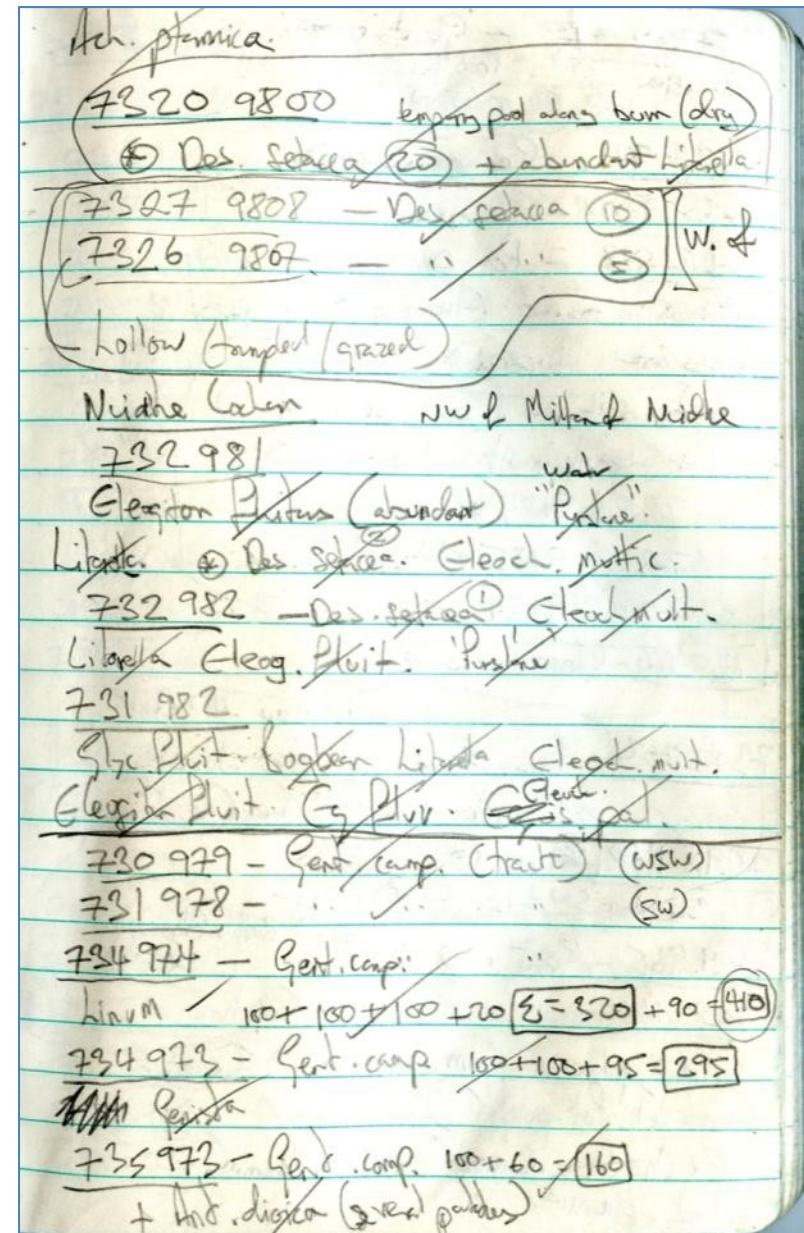 Ach. ptarmica.
7320 9800 temporary pool along burn (dry)
* Des. setacea 20 + abundant Litorella
7327 9808 — Des. setacea 10
7326 9807 — " " 5
W. of
- hollow (trampled/grazed)
Nuidhe Lochan NW of Milton of Nuidhe
732 981
water
Eleogiton fluitans (abundant) "Purslane".
Litorella. * Des. setacea. 2 Eleoch. multic.
732 982 — Des. setacea 1 Eleoch mult.
Litorella Eleog. fluit. 'Purslane'
731 982
Glyc. fluit. Bogbean Litorella Eleoch. mult.
Eleogiton fluit. Eq fluv. Eleoch. pal.
730 979 - Gent camp. (track) (WSW)
731 978 - " " " (SW)
734 974 — Gent. camp. "
Linum 100 + 100 + 100 + 20 Σ = 320 + 90 = 410
734 973 - Gent. camp 100 + 100 + 95 = 295
Genista
735 973 - Gent. camp. 100 + 60 = 160
+ Ant. dioica (several patches)